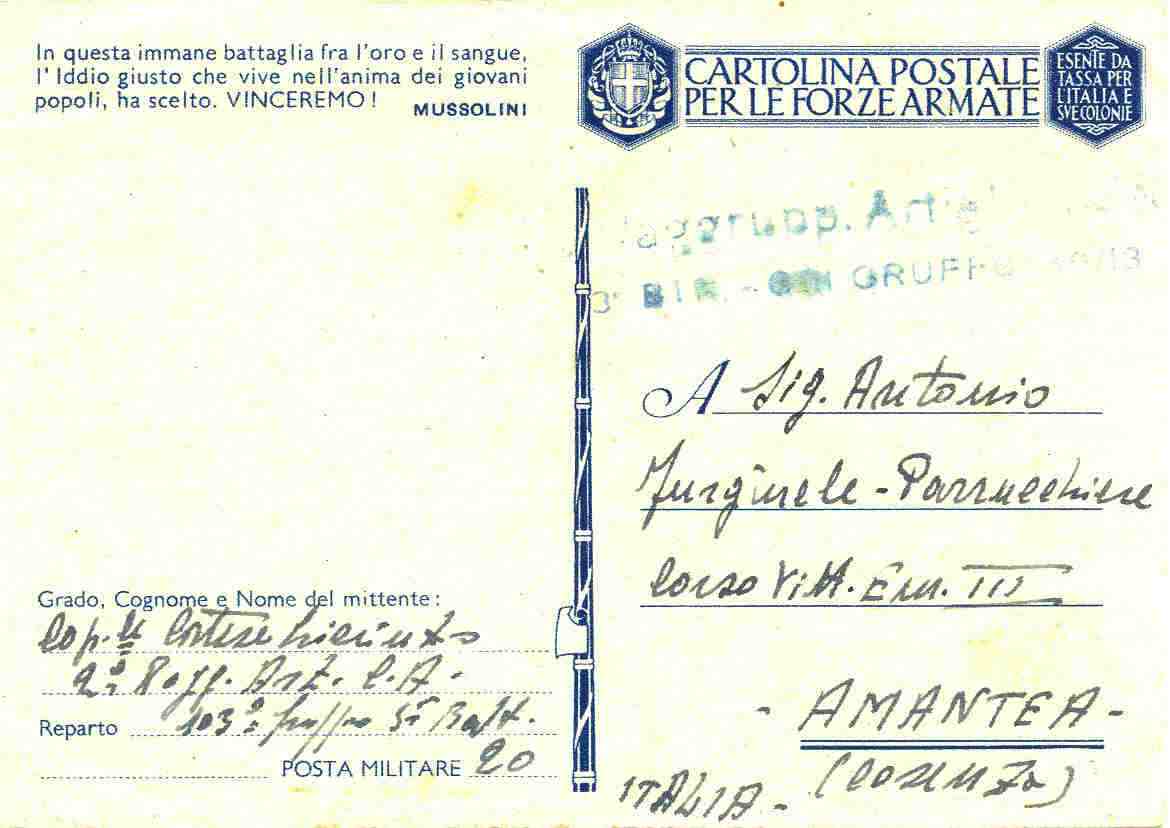 In questa immane battaglia fra l'oro e il sangue,
l'Iddio giusto che vive nell'anima dei giovani
popoli, ha scelto. VINCEREMO!
MUSSOLINI
CARTOLINA POSTALE
PER LE FORZE ARMATE
ESENTE DA
TASSA PER
L'ITALIA E
SVE COLONIE
GRUPPO
A Sig. Antonio
Furgiuele - Parrucchiere
Corso Vitt. Em. III
- AMANTEA -
(Cosenza)
ITALIA -
Grado, Cognome e Nome del mittente:
Cap. le Cortese
2° Ragg. Art. C. A.
Reparto 103° gruppo 3ª Batt.
POSTA MILITARE 20